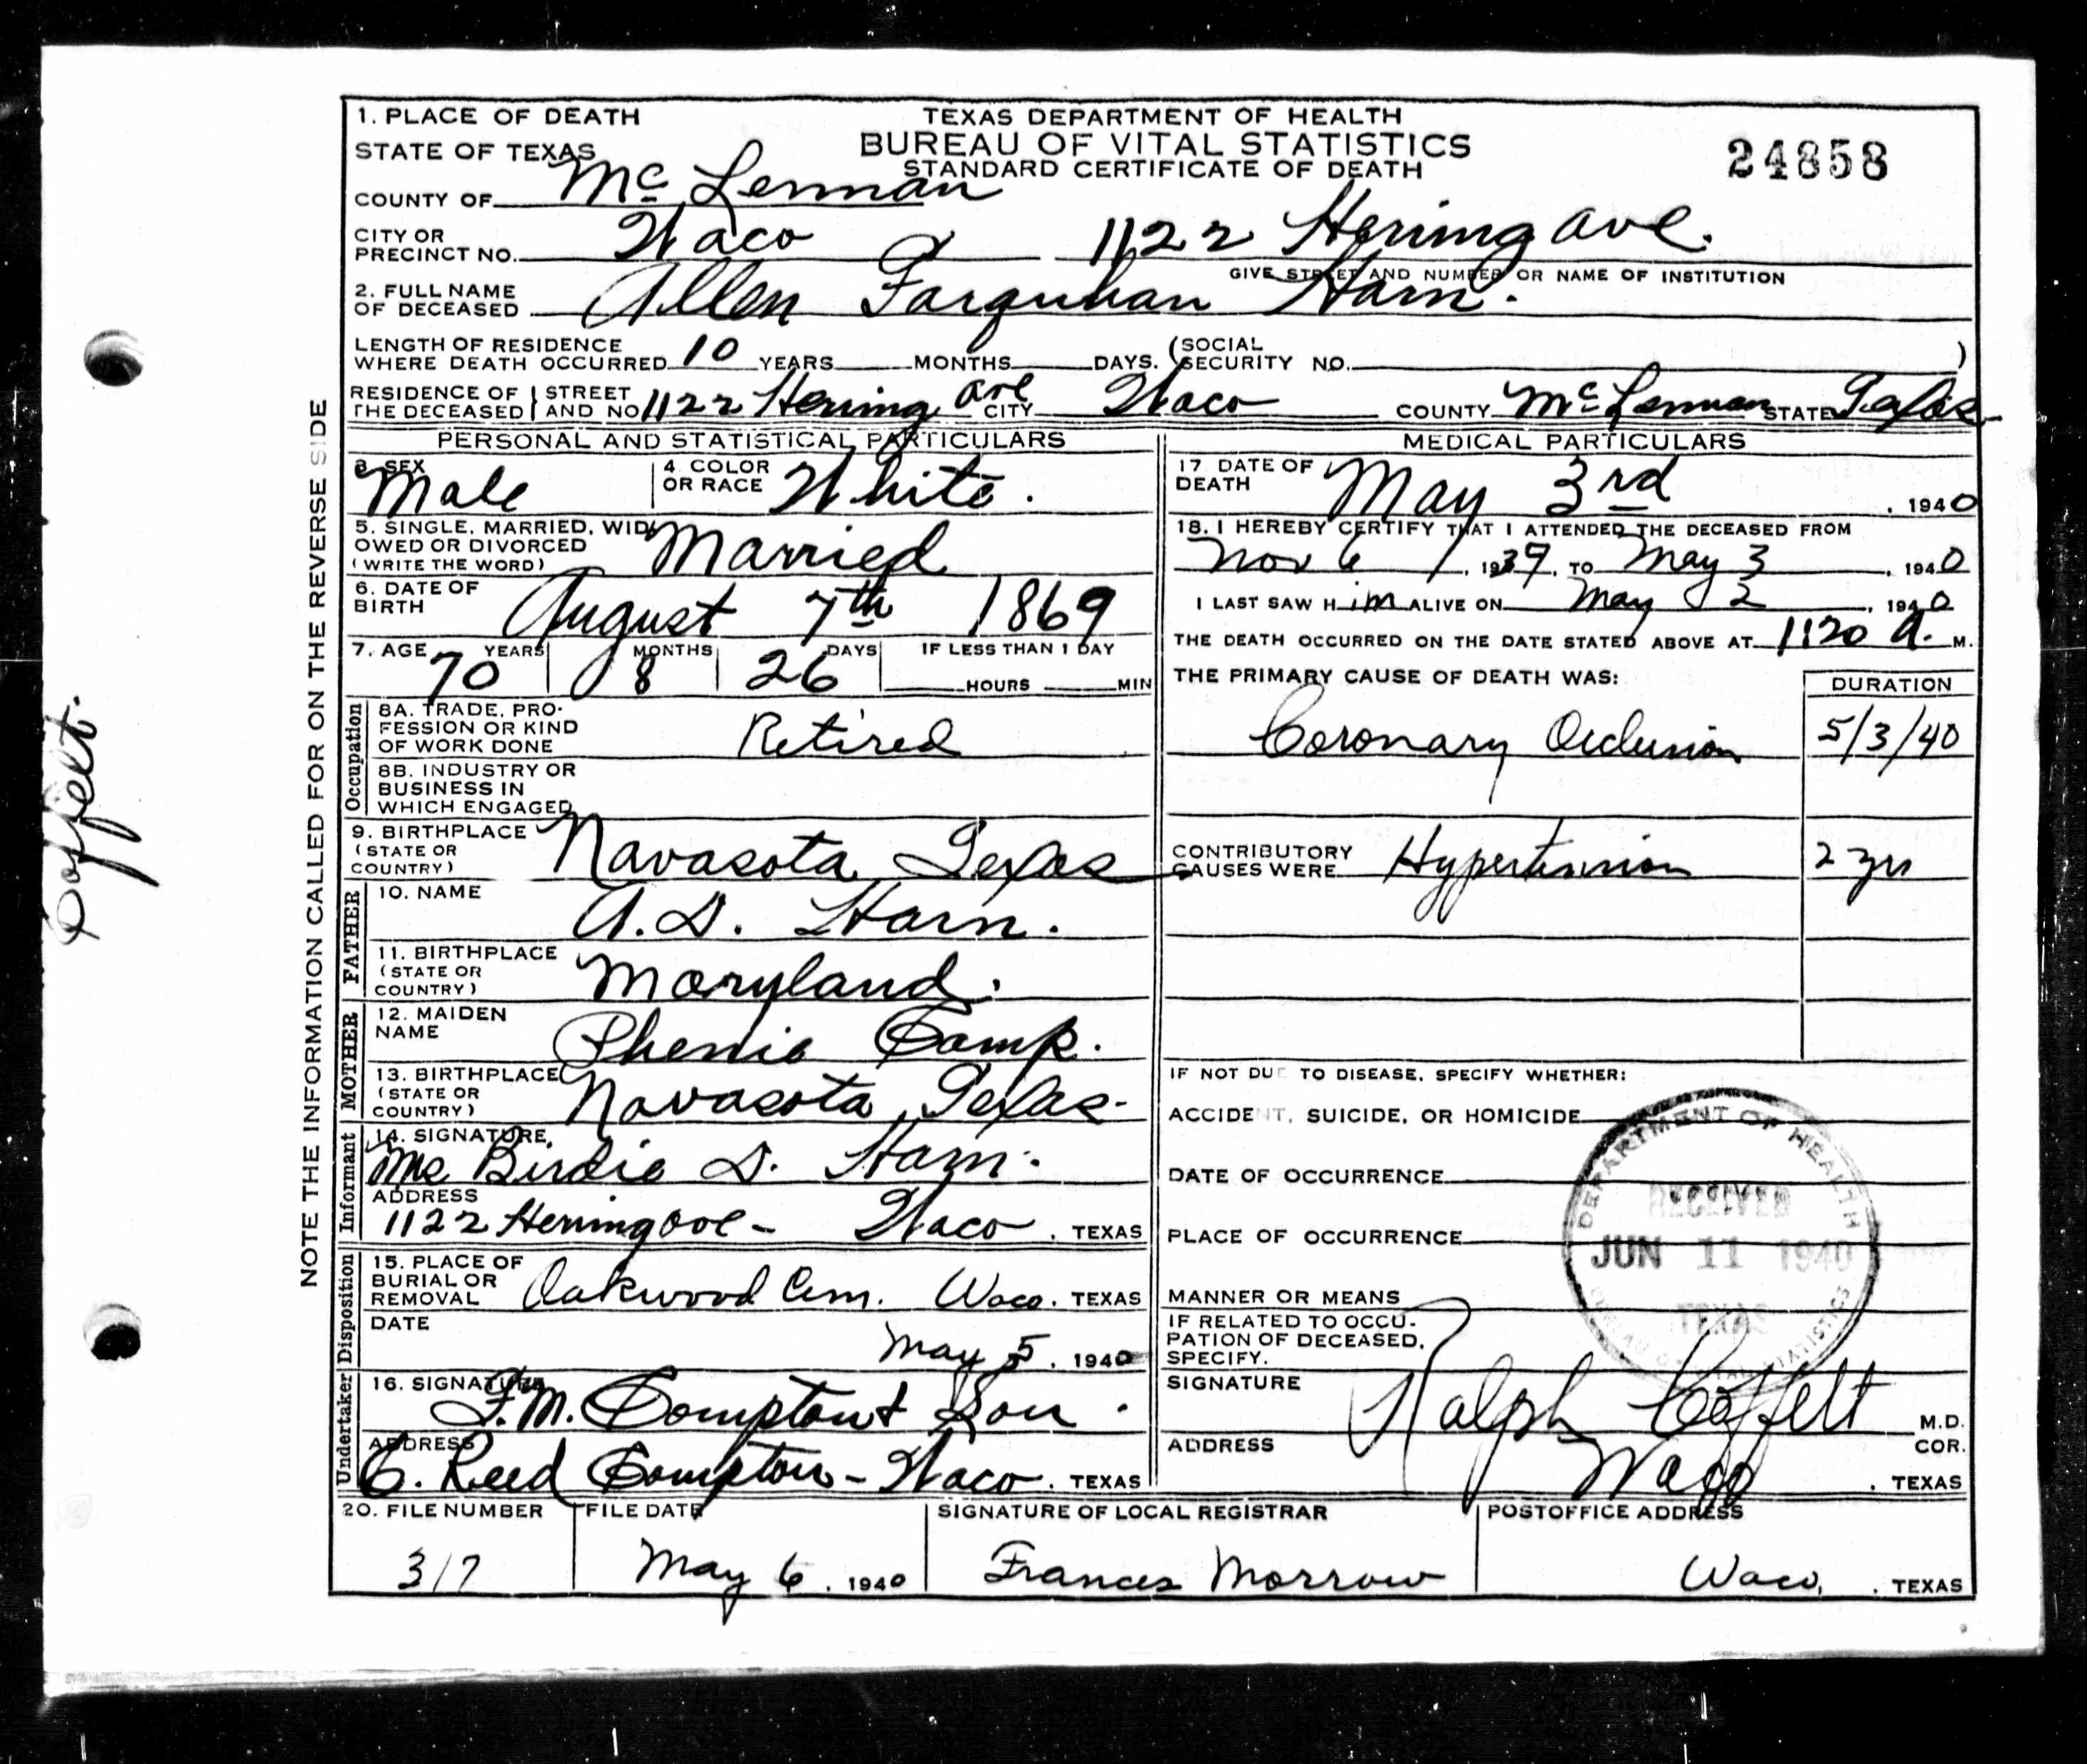 1. PLACE OF DEATH
STATE OF TEXAS
TEXAS DEPARTMENT OF HEALTH
BUREAU OF VITAL STATISTICS
STANDARD CERTIFICATE OF DEATH
24858
COUNTY OF Mc Lennan
CITY OR PRECINCT NO. Waco 1122 Hering ave.
GIVE STREET AND NUMBER OR NAME OF INSTITUTION
2. FULL NAME OF DECEASED Allen Farquhar Harn.
LENGTH OF RESIDENCE WHERE DEATH OCCURRED 10 YEARS MONTHS DAYS. (SOCIAL SECURITY NO. )
RESIDENCE OF THE DECEASED STREET AND NO 1122 Hering ave CITY Waco COUNTY Mc Lennan STATE Texas
PERSONAL AND STATISTICAL PARTICULARS
3. SEX Male
4 COLOR OR RACE White.
5. SINGLE, MARRIED, WIDOWED OR DIVORCED (WRITE THE WORD) Married
6. DATE OF BIRTH August 7th 1869
7. AGE 70 YEARS 8 MONTHS 26 DAYS IF LESS THAN 1 DAY
HOURS MIN
Occupation
8A. TRADE, PROFESSION OR KIND OF WORK DONE Retired
8B. INDUSTRY OR BUSINESS IN WHICH ENGAGED
9. BIRTHPLACE (STATE OR COUNTRY) Navasota Texas
FATHER
10. NAME A.D. Harn.
11. BIRTHPLACE (STATE OR COUNTRY) Maryland.
MOTHER
12. MAIDEN NAME Phenie Camp.
13. BIRTHPLACE (STATE OR COUNTRY) Navasota, Texas-
Informant
14. SIGNATURE Mrs Birdie D. Harn.
ADDRESS 1122 Hering ave - Waco . TEXAS
Disposition
15. PLACE OF BURIAL OR REMOVAL Oakwood Cem. Waco. TEXAS
DATE May 5, 1940
Undertaker
16. SIGNATURE F.M. Compton & Son.
ADDRESS C. Reed Compton - Waco . TEXAS
MEDICAL PARTICULARS
17. DATE OF DEATH May 3rd , 1940
18. I HEREBY CERTIFY THAT I ATTENDED THE DECEASED FROM
Nov 6 , 1939, TO May 3 , 1940
I LAST SAW Him ALIVE ON May 2 , 1940
THE DEATH OCCURRED ON THE DATE STATED ABOVE AT 1120 A. M.
THE PRIMARY CAUSE OF DEATH WAS: DURATION
Coronary Occlusion 5/3/40
CONTRIBUTORY CAUSES WERE Hypertension 2 yrs
IF NOT DUE TO DISEASE, SPECIFY WHETHER:
ACCIDENT, SUICIDE, OR HOMICIDE
DATE OF OCCURRENCE
PLACE OF OCCURRENCE
MANNER OR MEANS
IF RELATED TO OCCUPATION OF DECEASED, SPECIFY.
SIGNATURE Ralph Coffelt M.D.
COR.
ADDRESS Waco . TEXAS
DEPARTMENT OF HEALTH
RECEIVED
JUN 11 1940
TEXAS
BUREAU OF VITAL STATISTICS
20. FILE NUMBER 317
FILE DATE May 6, 1940
SIGNATURE OF LOCAL REGISTRAR Frances Morrow
POSTOFFICE ADDRESS Waco, . TEXAS
NOTE THE INFORMATION CALLED FOR ON THE REVERSE SIDE
Coffelt.